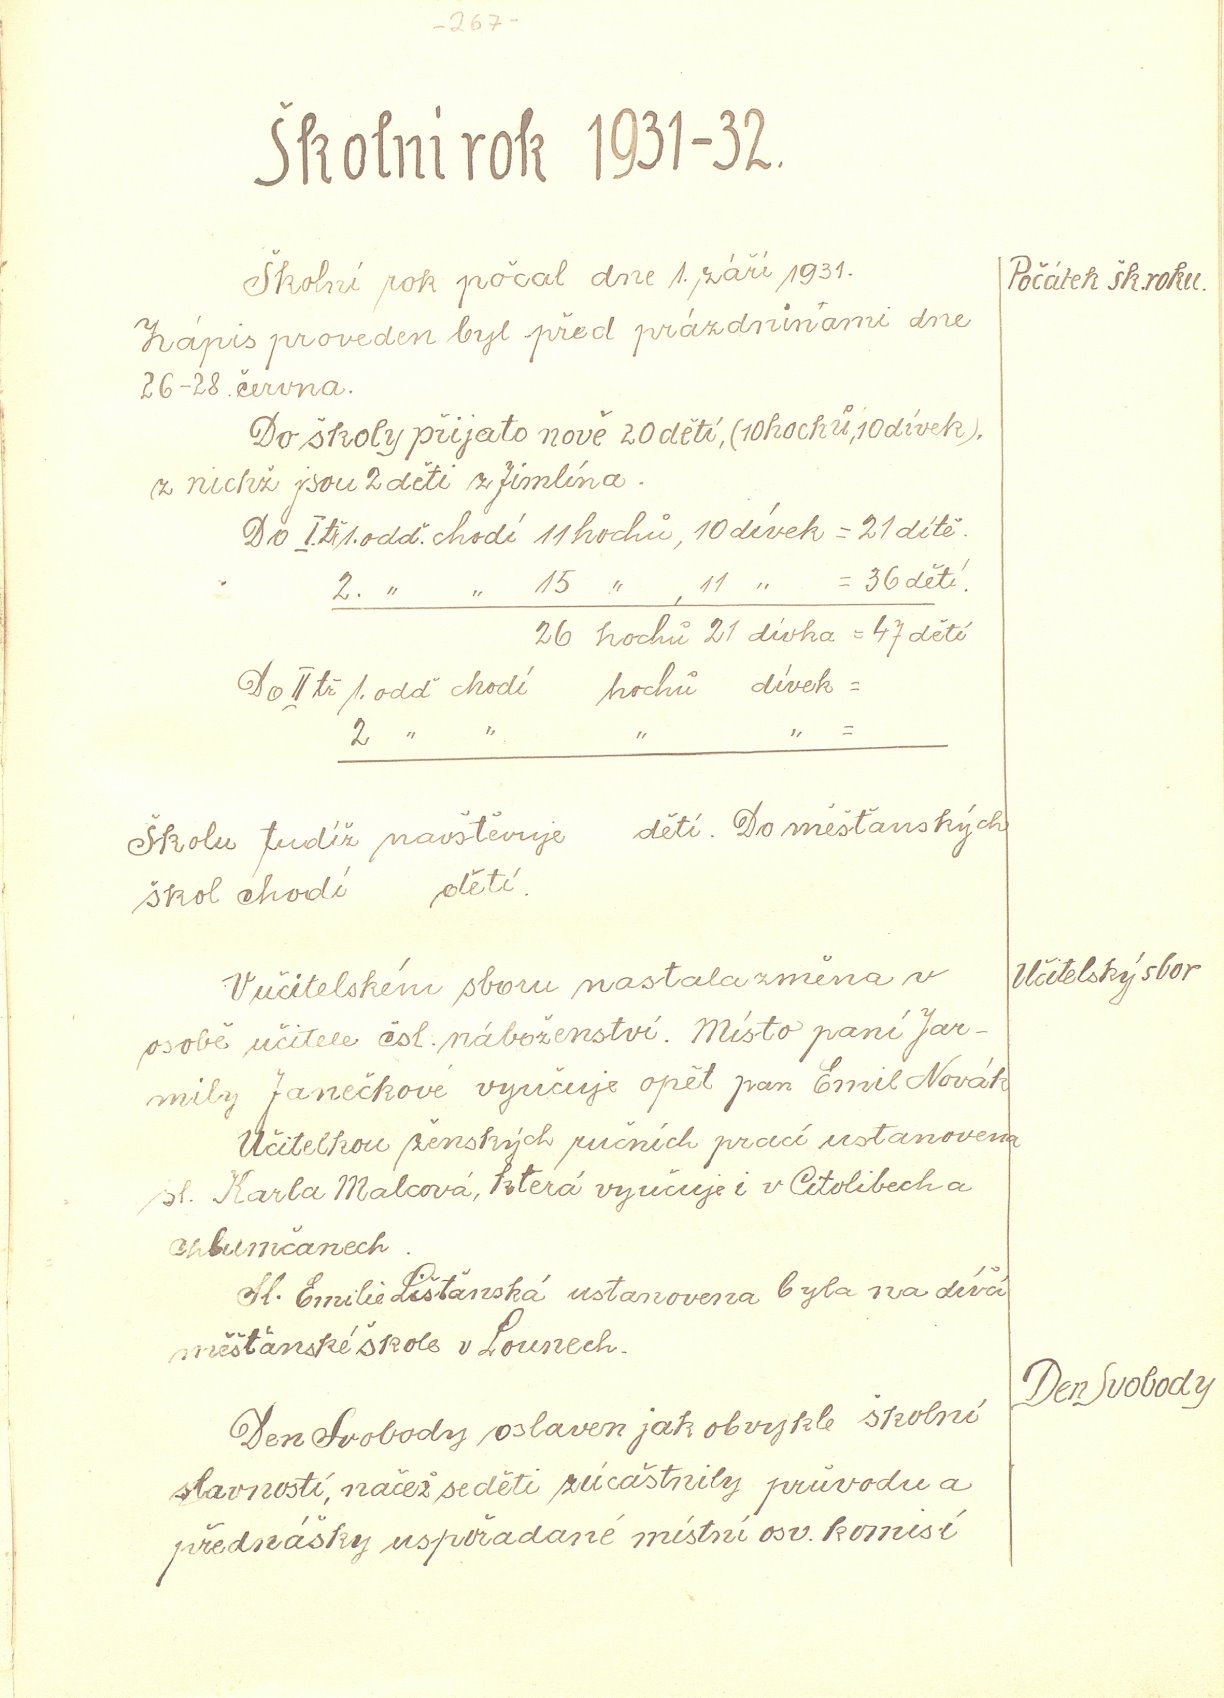 -267-
Školní rok 1931-32.
Školní rok počal dne 1. září 1931.
Počátek šk. roku.
Zápis proveden byl před prázdninami dne
26-28. června.
Do školy přijato nově 20 dětí, (10 hochů, 10 dívek),
z nichž jsou 2 děti z Jimlína.
Do I. tř. 1. odd. chodí 11 hochů, 10 dívek = 21 dítě.
2. " " 15 " , 11 " = 36 dětí.
26 hochů 21 dívka = 47 dětí
Do II tř 1. odd chodí hochů dívek =
2 " " " " =
Školu tudíž navštěvuje dětí. Do měšťanských
škol chodí dětí.
V učitelském sboru nastala změna v
Učitelský sbor
osobě učitele čsl. náboženství. Místo paní Jar-
mily Janečkové vyučuje opět pan Emil Novák
Učitelkou ženských ručních prací ustanovena
sl. Karla Malcová, která vyučuje i v Citolibech a
Chlumčanech.
Sl. Emilie Lišťanská ustanovena byla na dívčí
měšťanské škole v Lounech.
Den Svobody
Den Svobody oslaven jak obvykle školní
slavností, načež se děti zúčastnily průvodu a
přednášky uspořádané místní osv. komisí